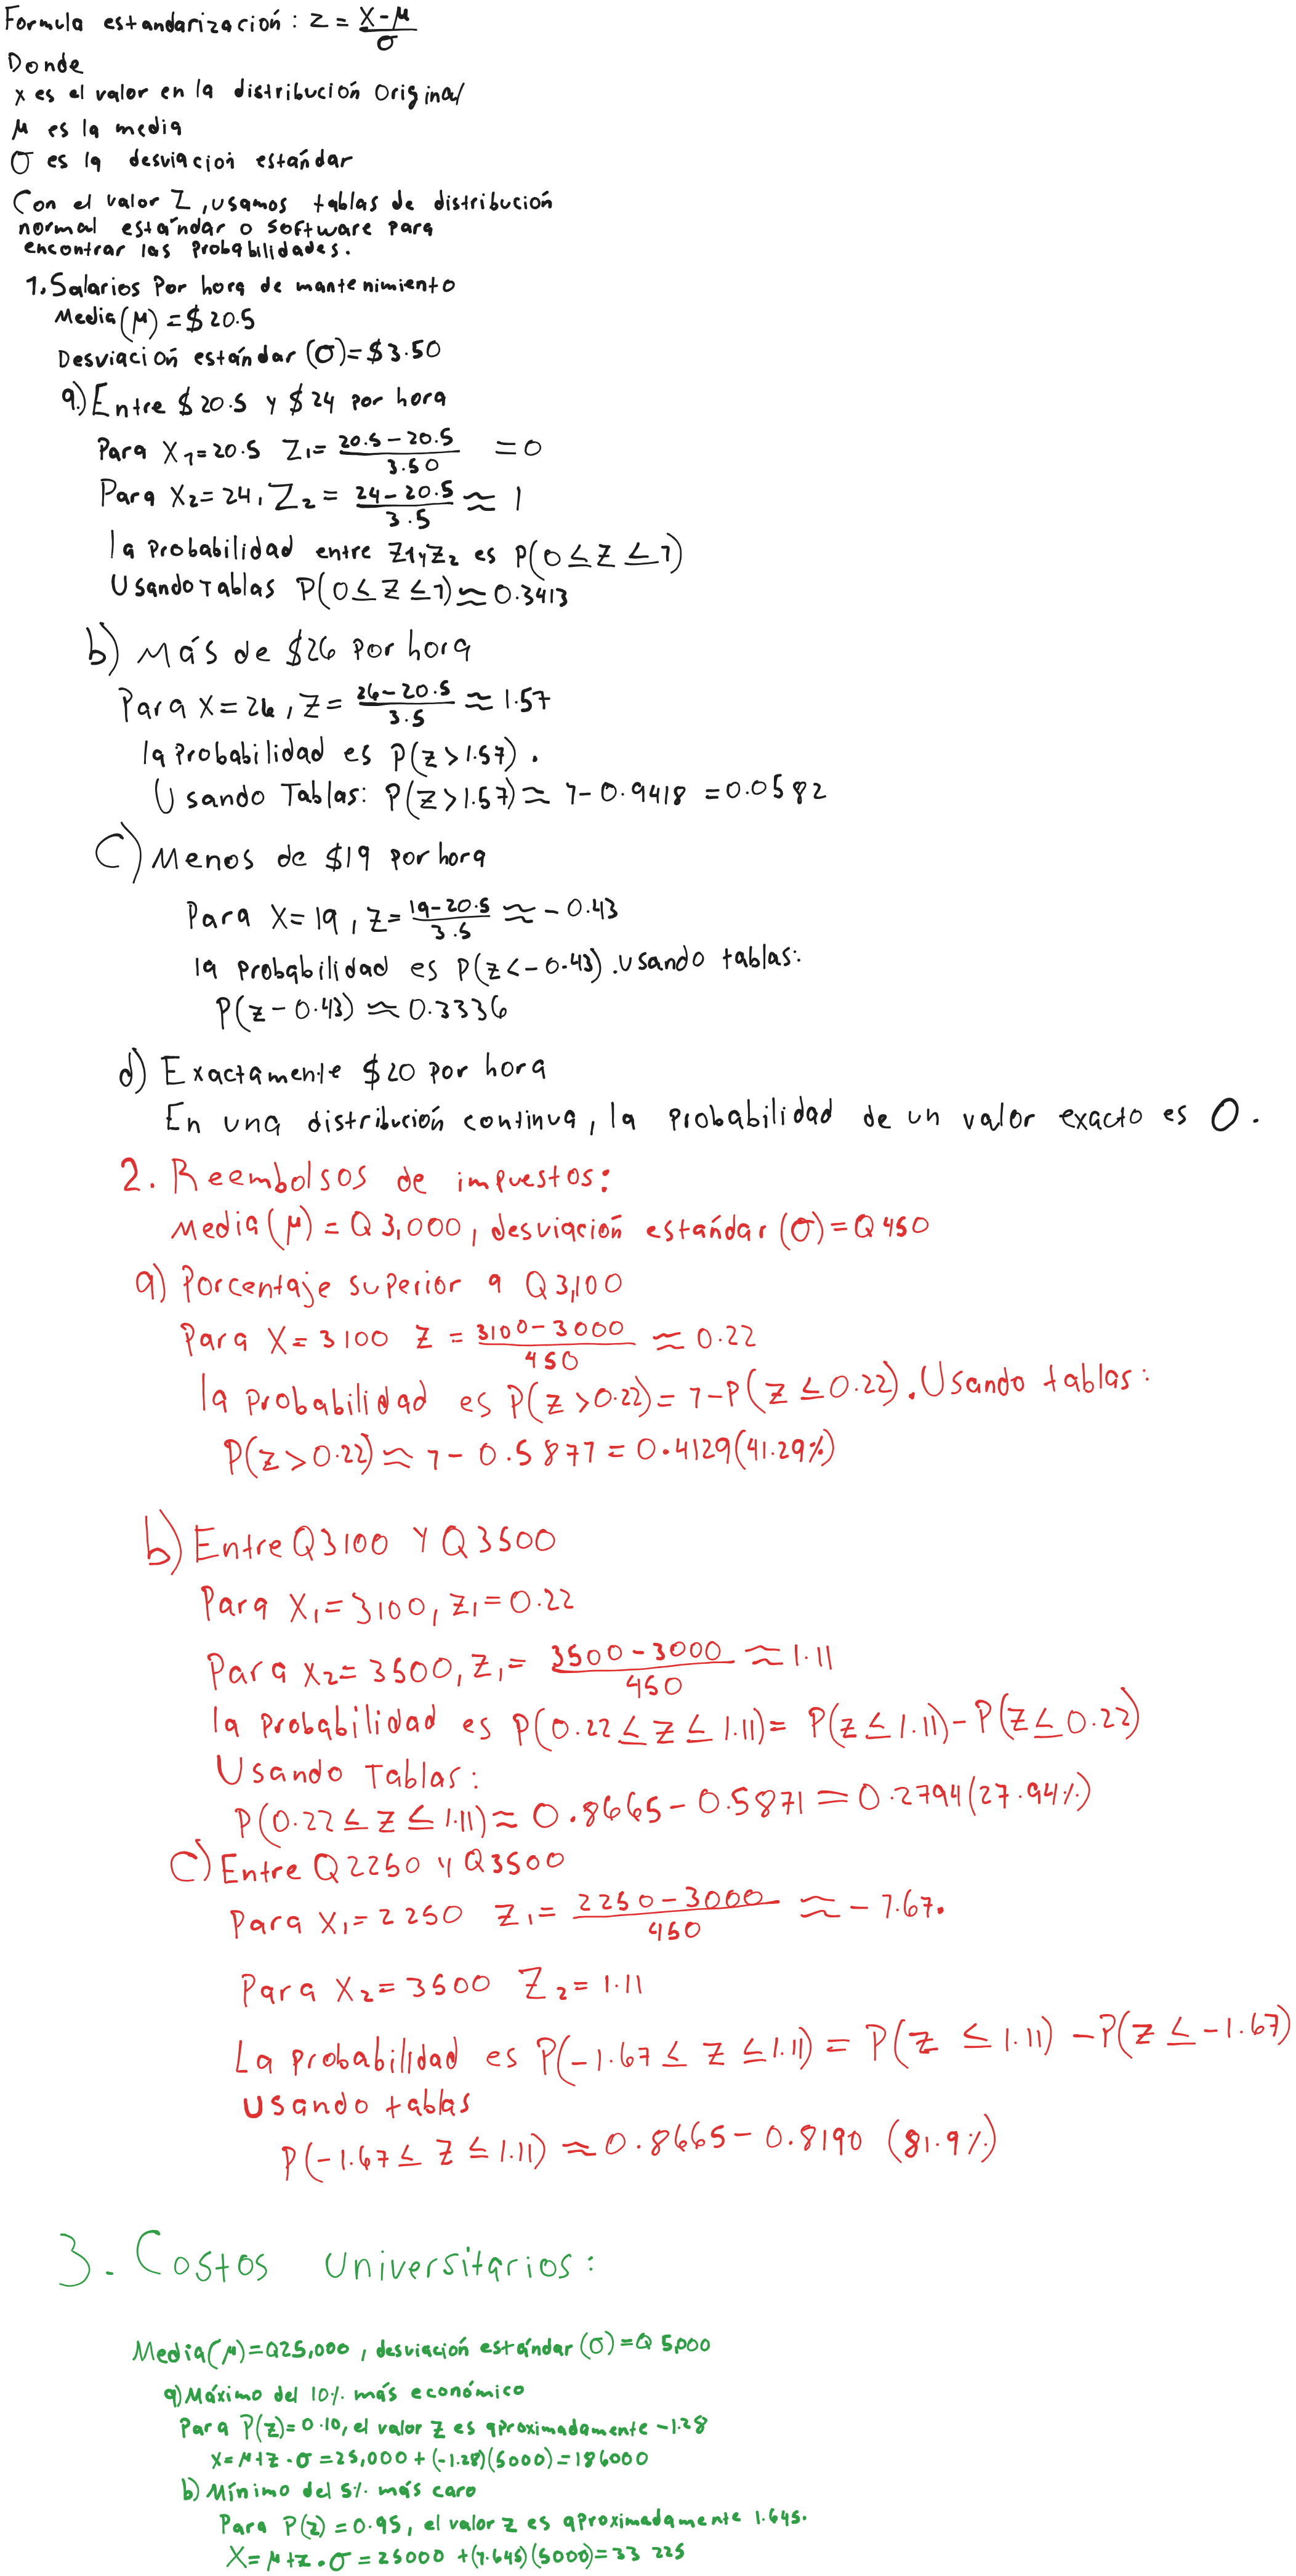 Formula estandarización: z = x-μ/σ
Donde
x es el valor en la distribución original
μ es la media
σ es la desviación estándar
Con el valor Z, usamos tablas de distribución
normal estándar o software para
encontrar las probabilidades.
1. Salarios Por hora de mantenimiento
Media (μ) = $20.5
Desviación estándar (σ) = $3.50
a) Entre $20.5 y $24 por hora
Para X1=20.5 Z1= 20.5-20.5/3.50 = 0
Para X2=24, Z2 = 24-20.5/3.5 ≈ 1
la probabilidad entre Z1 y Z2 es P(0 ≤ Z ≤ 1)
Usando Tablas P(0 ≤ Z ≤ 1) ≈ 0.3413
b) Más de $26 por hora
Para X=26, Z= 26-20.5/3.5 ≈ 1.57
la Probabilidad es P(z > 1.57).
Usando Tablas: P(z > 1.57) ≈ 1-0.9418 = 0.0582
C) Menos de $19 por hora
Para X=19, Z= 19-20.5/3.5 ≈ -0.43
la probabilidad es P(z < -0.43). usando tablas:
P(z - 0.43) ≈ 0.3336
d) Exactamente $20 por hora
En una distribución continua, la probabilidad de un valor exacto es 0.
2. Reembolsos de impuestos:
Media (μ) = Q3,000, desviación estándar (σ) = Q450
a) Porcentaje superior a Q3,100
Para X = 3100 Z = 3100-3000/450 ≈ 0.22
la probabilidad es P(z > 0.22) = 1-P(Z ≤ 0.22). Usando tablas:
P(z > 0.22) ≈ 1-0.5871 = 0.4129 (41.29%)
b) Entre Q3100 Y Q3500
Para X1=3100, z1=0.22
Para x2=3500, Z1= 3500-3000/450 ≈ 1.11
la probabilidad es P(0.22 ≤ z ≤ 1.11) = P(z ≤ 1.11) - P(z ≤ 0.22)
Usando Tablas:
P(0.22 ≤ z ≤ 1.11) ≈ 0.8665-0.5871 = 0.2794 (27.94%)
C) Entre Q2250 y Q3500
Para X1=2250 Z1= 2250-3000/450 ≈ -1.67.
Para X2=3500 Z2=1.11
La probabilidad es P(-1.67 ≤ z ≤ 1.11) = P(z ≤ 1.11) - P(z ≤ -1.67)
Usando tablas
P(-1.67 ≤ Z ≤ 1.11) ≈ 0.8665-0.8190 (81.9%)
3. Costos Universitarios:
Media (μ) = Q25,000, desviación estándar (σ) = Q5,000
a) Máximo del 10% más económico
Para P(z)=0.10, el valor z es aproximadamente -1.28
x = μ+z · σ = 25,000 + (-1.28)(5000) = 186000
b) Mínimo del 5% más caro
Para P(z) = 0.95, el valor z es aproximadamente 1.645.
X = μ+z · σ = 25000 + (1.645)(5000) = 33 225